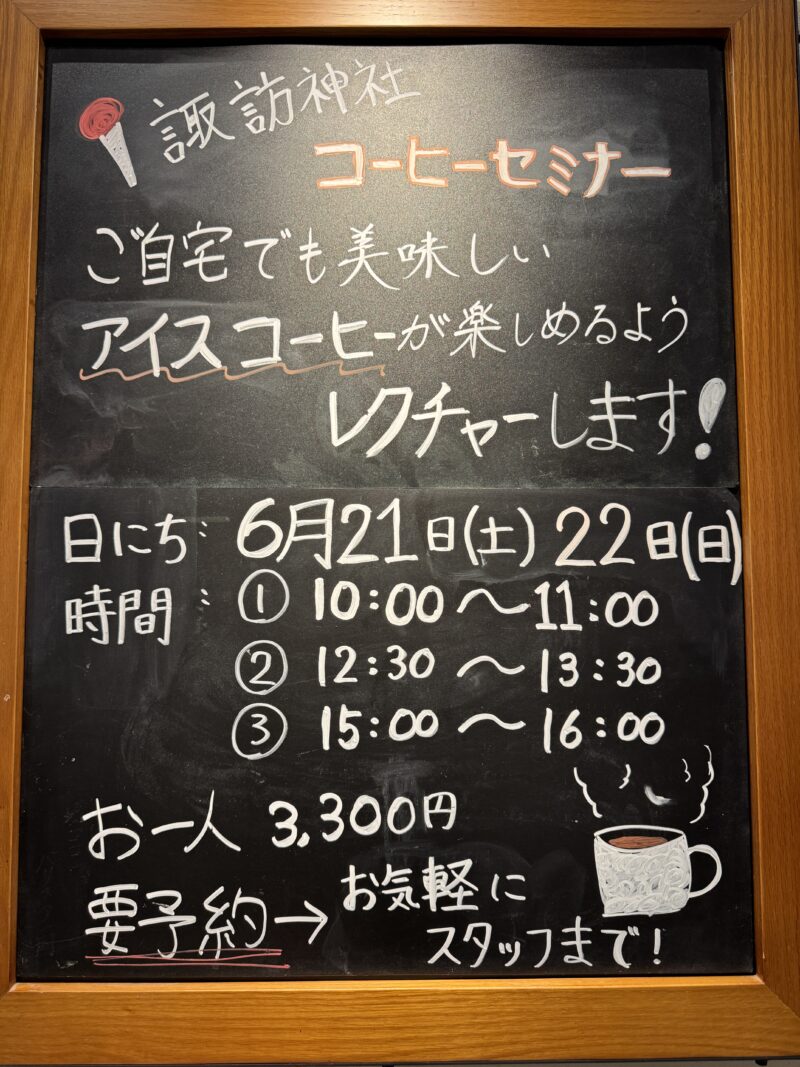 諏訪神社
コーヒーセミナー
ご自宅でも美味しい
アイスコーヒーが楽しめるよう
レクチャーします!
日にち: 6月21日(土) 22日(日)
時間: ① 10:00〜11:00
② 12:30〜13:30
③ 15:00〜16:00
お一人 3,300円
要予約→お気軽に
スタッフまで!